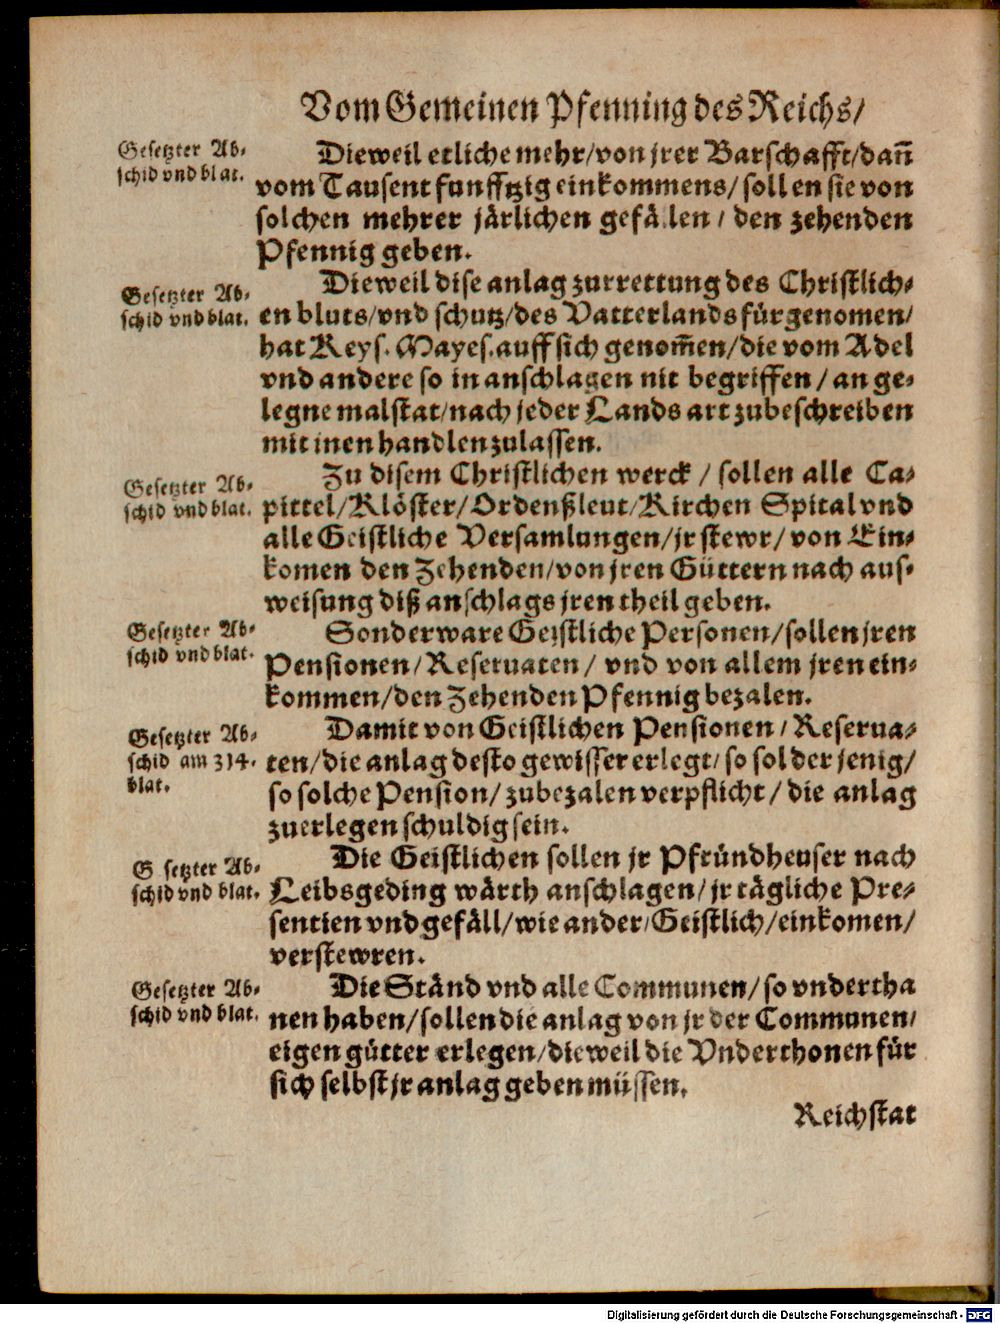 Vom Gemeinen Pfenning des Reichs/
Gesetzter Ab-
schid vnd blat.
Dieweil etliche mehr/von jrer Barschafft/dañ
vom Tausent funfftzig einkommens/sollen sie von
solchen mehrer järlichen gefällen/den zehenden
Pfennig geben.
Gesetzter Ab-
schid vnd blat.
Dieweil dise anlag zurrettung des Christlich-
en bluts/vnd schutz/des Vatterlands fürgenomen/
hat Keys. Mayes. auff sich genom̄en/die vom Adel
vnd andere so in anschlagen nit begriffen/an ge-
legne malstat/nach jeder Lands art zubeschreiben
mit inen handlen zulassen.
Gesetzter Ab-
schid vnd blat.
Zu disem Christlichen werck/sollen alle Ca-
pittel/Klöster/Ordenßleut/Kirchen Spital vnd
alle Geistliche Versamlungen/jr stewr/von Ein-
komen den Zehenden/von jren Güttern nach aus-
weisung diß anschlags jren theil geben.
Gesetzter Ab-
schid vnd blat.
Sonderware Geistliche Personen/sollen jren
Pensionen/Reseruaten/vnd von allem jren ein-
kommen/den Zehenden Pfennig bezalen.
Gesetzter Ab-
schid am 314.
blat.
Damit von Geistlichen Pensionen/Reserua-
ten/die anlag desto gewisser erlegt/so sol der jenig/
so solche Pension/zubezalen verpflicht/die anlag
zuerlegen schuldig sein.
G setzter Ab-
schid vnd blat.
Die Geistlichen sollen jr Pfründheuser nach
Leibsgeding wärth anschlagen/jr tägliche Pre-
sentien vnd gefäll/wie ander/Geistlich/einkomen/
verstewren.
Gesetzter Ab-
schid vnd blat.
Die Ständ vnd alle Communen/so vndertha
nen haben/sollen die anlag von jr der Communen/
eigen gütter erlegen/dieweil die Vnderthonen für
sich selbst jr anlag geben müssen.
Reichstat
Digitalisierung gefördert durch die Deutsche Forschungsgemeinschaft - DFG